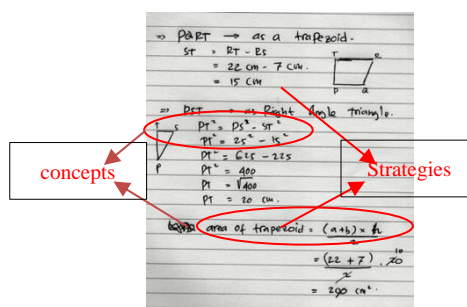 ⇒ PQRT → as a trapezoid.
ST = RT - RS
= 22 cm - 7 cm
= 15 cm
T R
P Q
⇒ PST as Right Angle triangle.
T S
PT² = PS² - ST²
PT² = 25² - 15²
PT² = 625 - 225
P
PT² = 400
PT = √400
PT = 20 cm.
concepts
Strategies
area of trapezoid = (a+b) × h
2
= (22 + 7) . 20 10
2
= 290 cm².